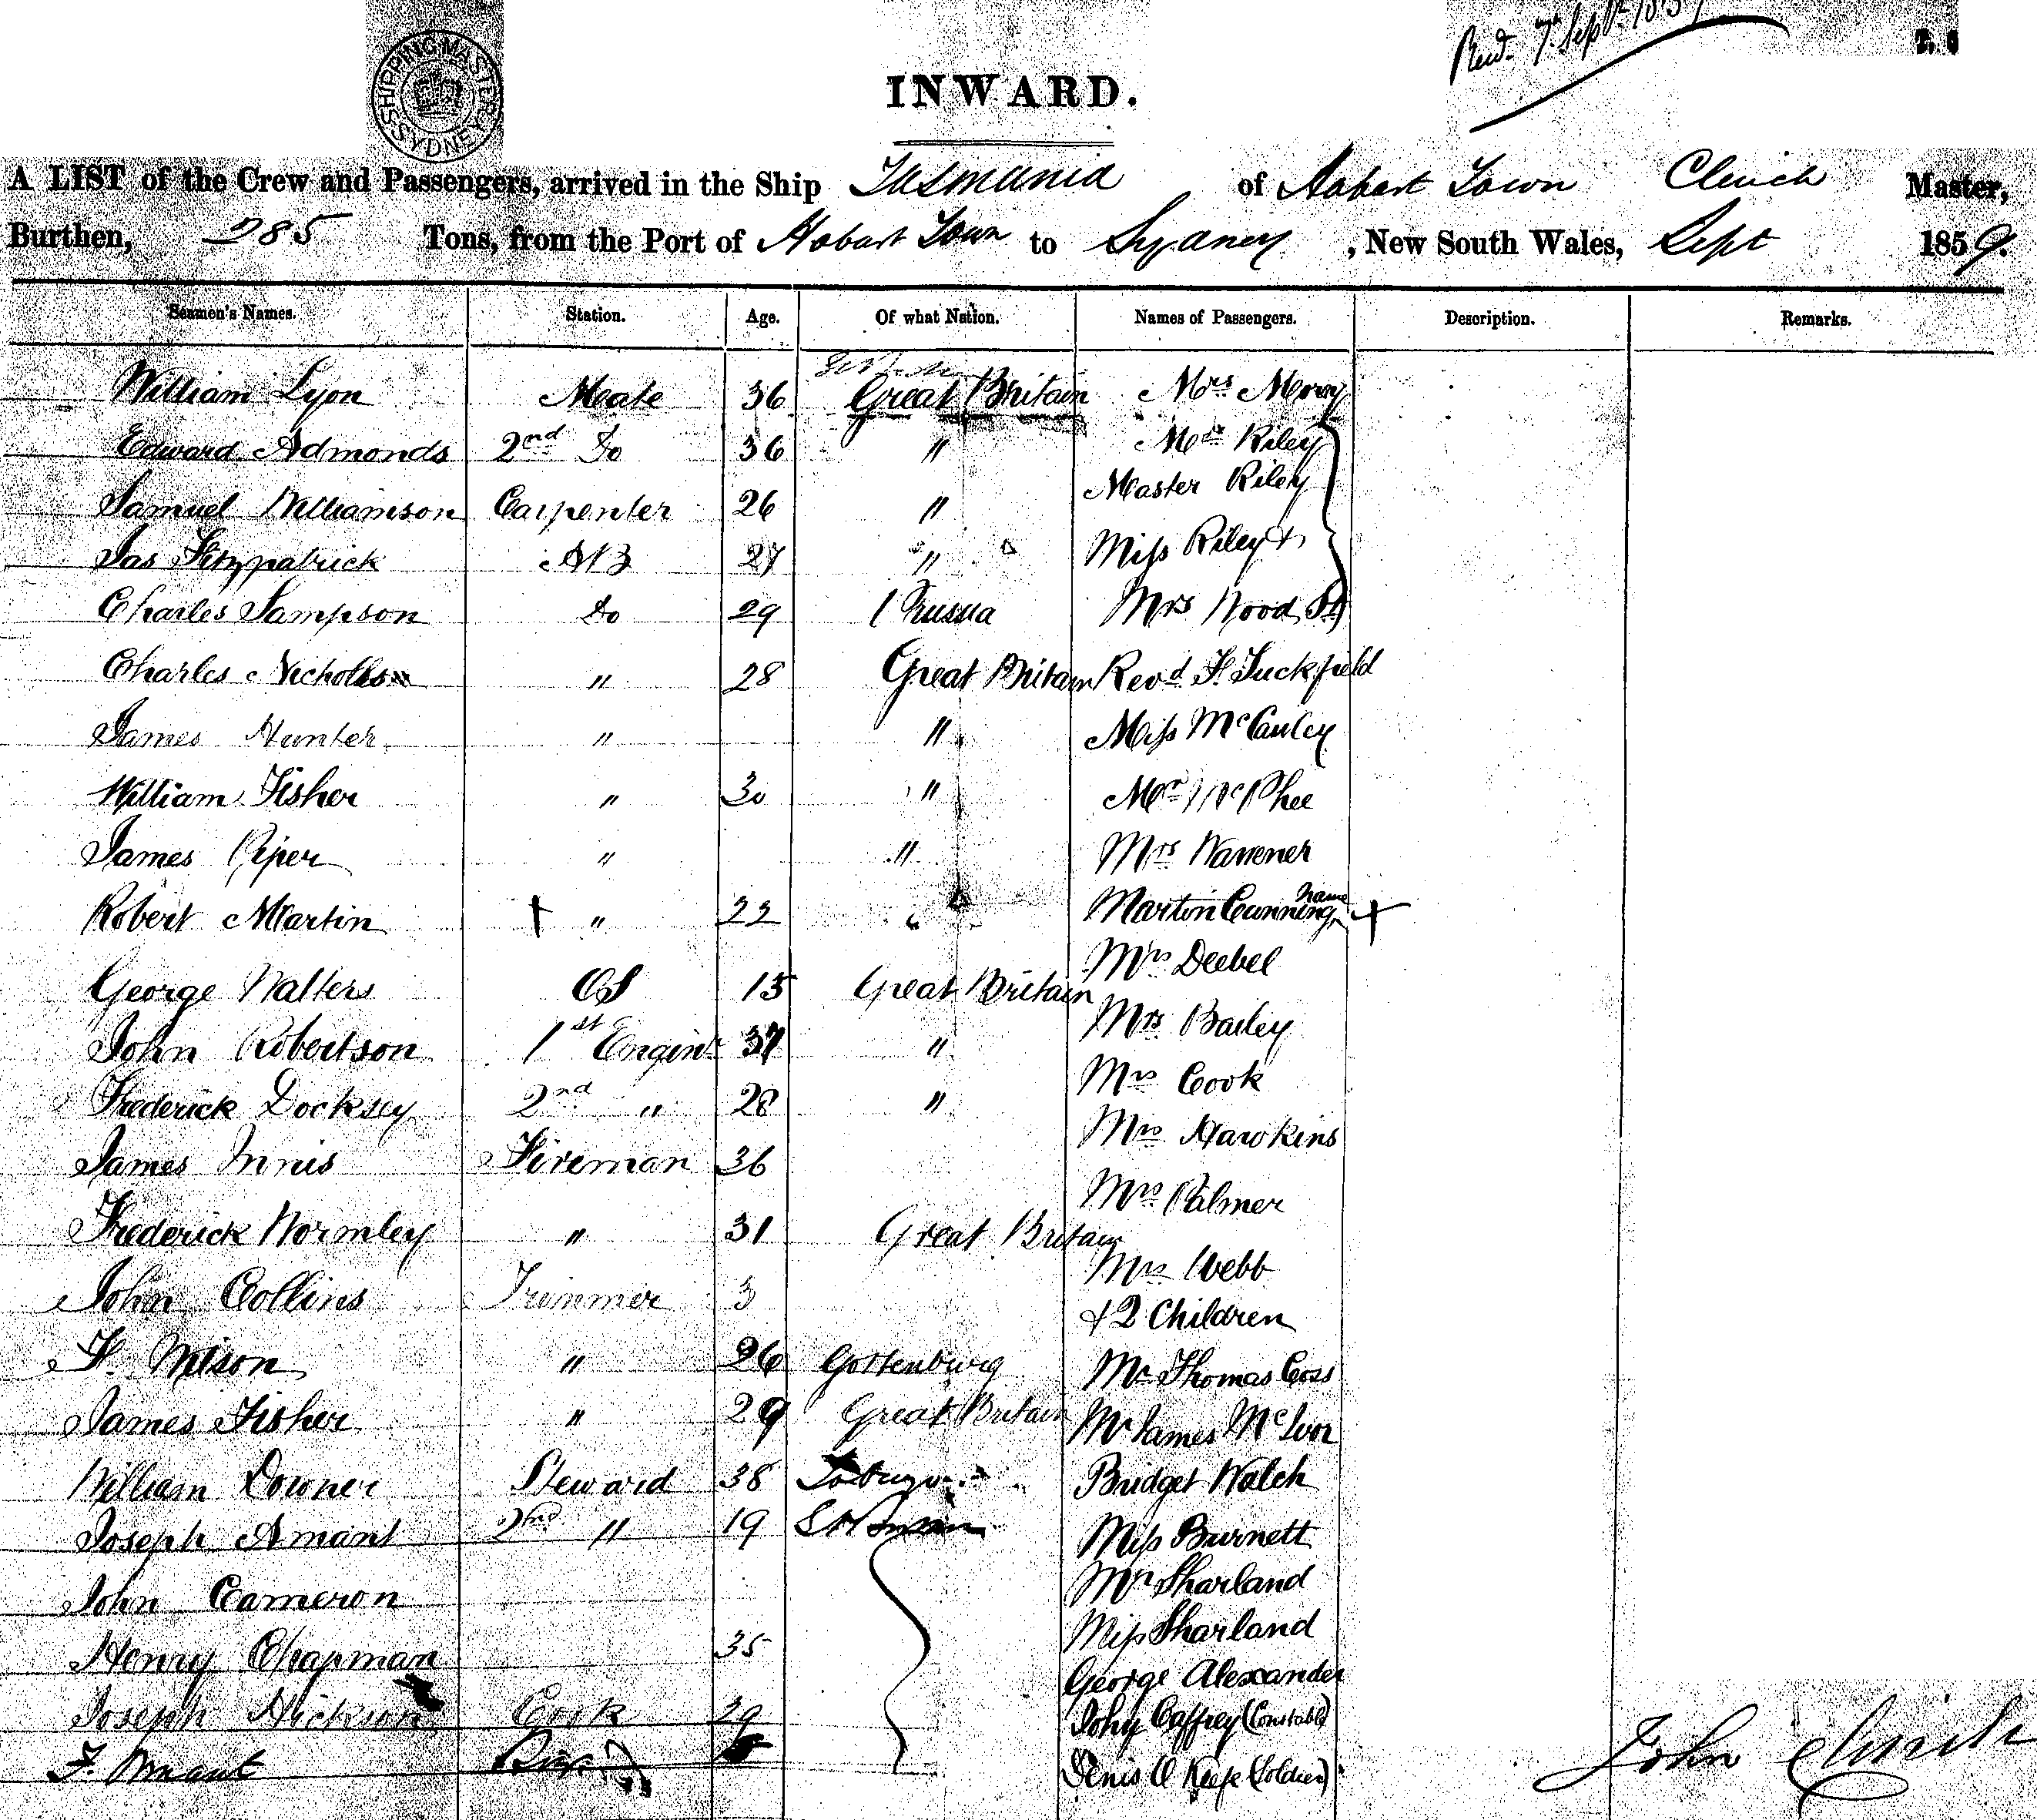 Recd. 7th Septr 1859
SHIPPING MASTERS SYDNEY
INWARD.
A LIST of the Crew and Passengers, arrived in the Ship Tasmania of Hobart Town Clinch Master,
Burthen, 285 Tons, from the Port of Hobart Town to Sydney, New South Wales, Sept 1859.
Seamen's Names. Station. Age. Of what Nation. Names of Passengers. Description. Remarks.
William Lyon Mate 36 Great Britain Mrs Merry
Edward Admonds 2nd Do 36 " Riley
Master Riley
Samuel Williamson Carpenter 26 "
Jas Fitzpatrick AB 27 " Miss Riley &
Charles Sampson Do 29 Prussia Mrs Wood
Charles Nicholls " 28 Great Britain Revd F. Tuckfield
James Hunter " " Miss McCauley
William Fisher " 30 " Mr McPhee
James Piper " " Mrs Warrener
Robert Martin + " 22 " Martin Cunningham +
Mrs Deebel
George Walters OS 15 Great Britain
Mrs Bailey
John Robertson 1st Enginr 37 "
Mrs Cook
Frederick Docksey 2nd " 28 "
Mrs Hawkins
James Innis Fireman 36
Mrs Palmer
Frederick Wormley " 31 Great Britain
Mrs Webb
John Collins Trimmer 3
& 2 Children
F. " 26 Gottenburg Mr Thomas Coss
James Fisher " 29 Great Britain Mr James McIvor
William Downer Steward 38 Bridget Walch
Joseph Amant 2nd " 19 Miss Burnett
John Cameron Mr Sharland
Miss Sharland
Henry Chapman 35
George Alexander
Joseph Hickson Cook 29 John Caffrey (Constable)
F. Denis O Keefe (Soldier)
John Clinch